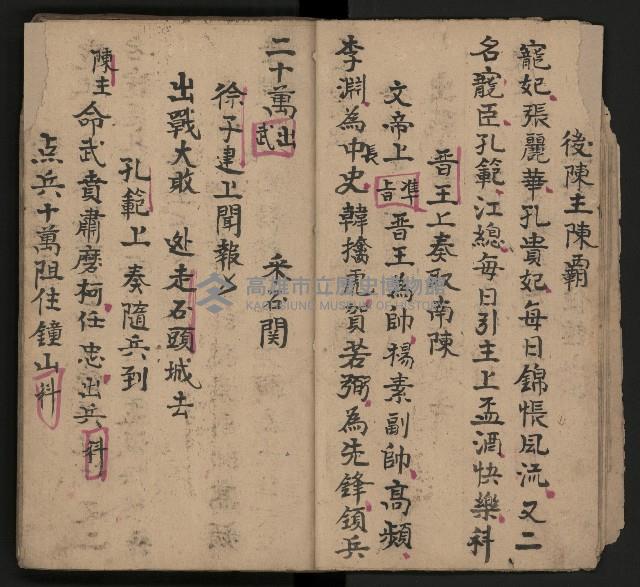 後陳主陳霸
寵妃張麗華孔貴妃每日錦帳風流又二
名寵臣孔範江總每日引主上盃酒快樂科
晋王上奏取南陳
文帝上準旨晋王為帥楊素副帥高頻
李淵為中長史韓擒虎賀若弼為先鋒領兵
二十萬出武
采石関
徐子建上聞報
出戰大敗 走石頭城去
孔範上奏隨兵到
陳主命武賁肅磨柯任忠出兵科
点兵十萬阻住鐘山科
高雄市立歷史博物館
KAOHSIUNG MUSEUM OF HISTORY